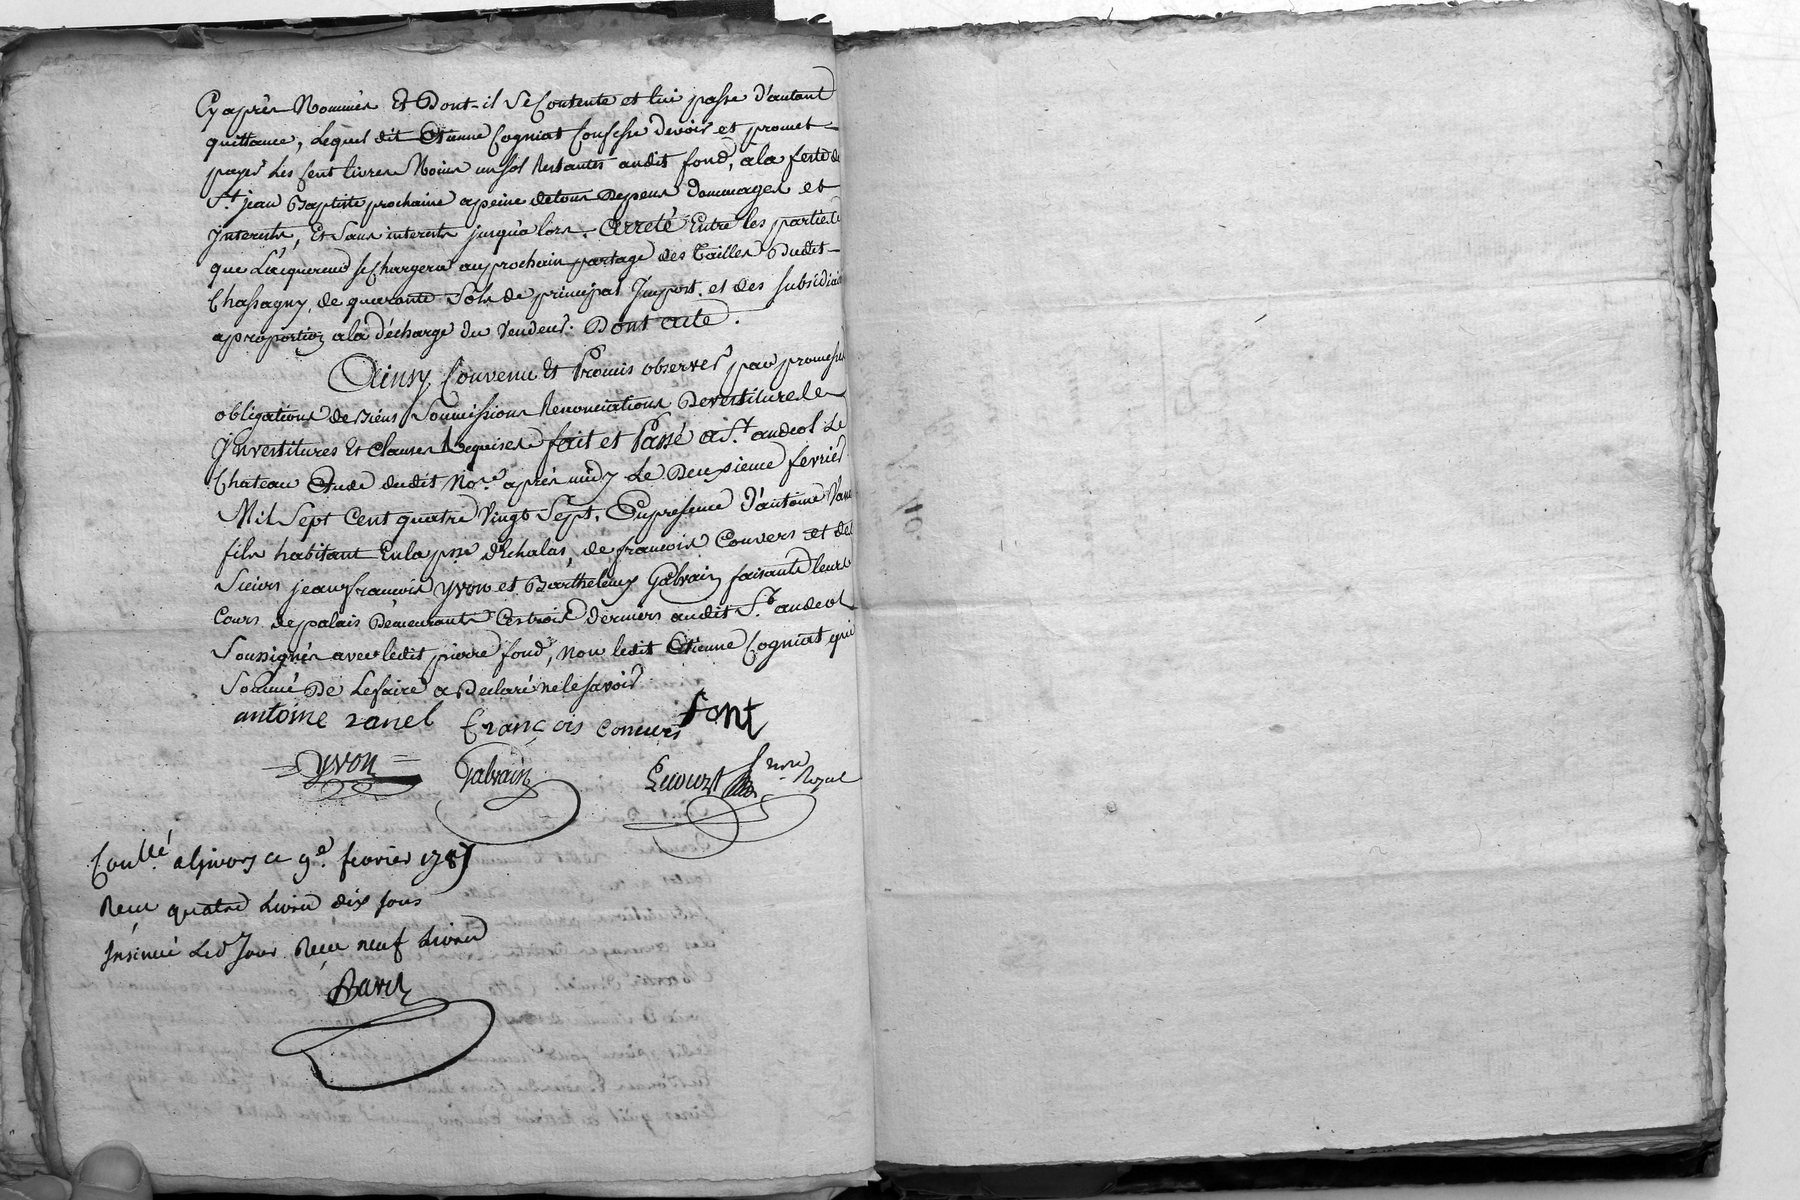 Cy après Nommés Et Dont-il Se Contente et lui passe d'autant
quittance, Lequel dit Etienne Cogniat Confesse devoir et promet
payer Les Cent livres Moins un sol Restantes audit fond, a la feste de
St. jean Baptiste prochaine a peine de tous Depens dommages et
Interests, Et Sans interests jusqu'alors. Arreté Entre les parties
que L'acquereur se Chargera au prochain partage des Tailles Dudit
Chassagny, de quarante Sols de principal Import. et des subsidiaires
a proportion a la décharge du Vendeur. Dont acte.
Ainsy Convenu Et Promis observer par promesses
obligations de Biens Soumissions Renonciations Devestitures
Investitures Et Clauses Requises fait et Passé a St. andeol Le
Chateau Etude dudit No.re après midy Le Deuxieme fevrier
Mil Sept Cent quatre Vingt Sept, En presence d'antoine
fils habitant En la psse d'Echalas, de francois Couvers et des
Sieurs jean francois Yvon et Barthelemy Galvain faisants leurs
Cours de palais Demeurants Ces trois derniers audit St. andeol
Soussignés avec ledit pierre fond, non ledit Etienne Cogniat qui
Sommé De Le faire a Declaré ne le savoir
antoine ranel françois couvers font
Yvon Galvain nore Royal
Conllé a Givors ce 9e. fevrier 1787
Reçu quatre Livres dix sous
Insinué Led Jour Reçu neuf Livres